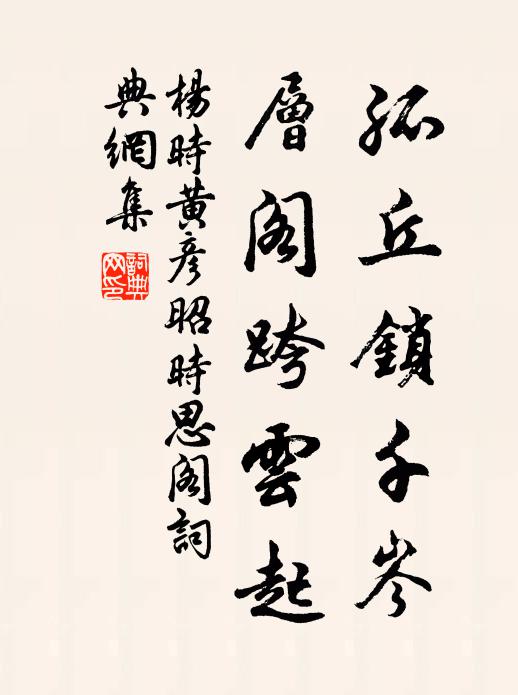 孤丘鎖千岑
層閣跨雲起
楊時黃彥昭時思閣詞
典網集
詞典網印